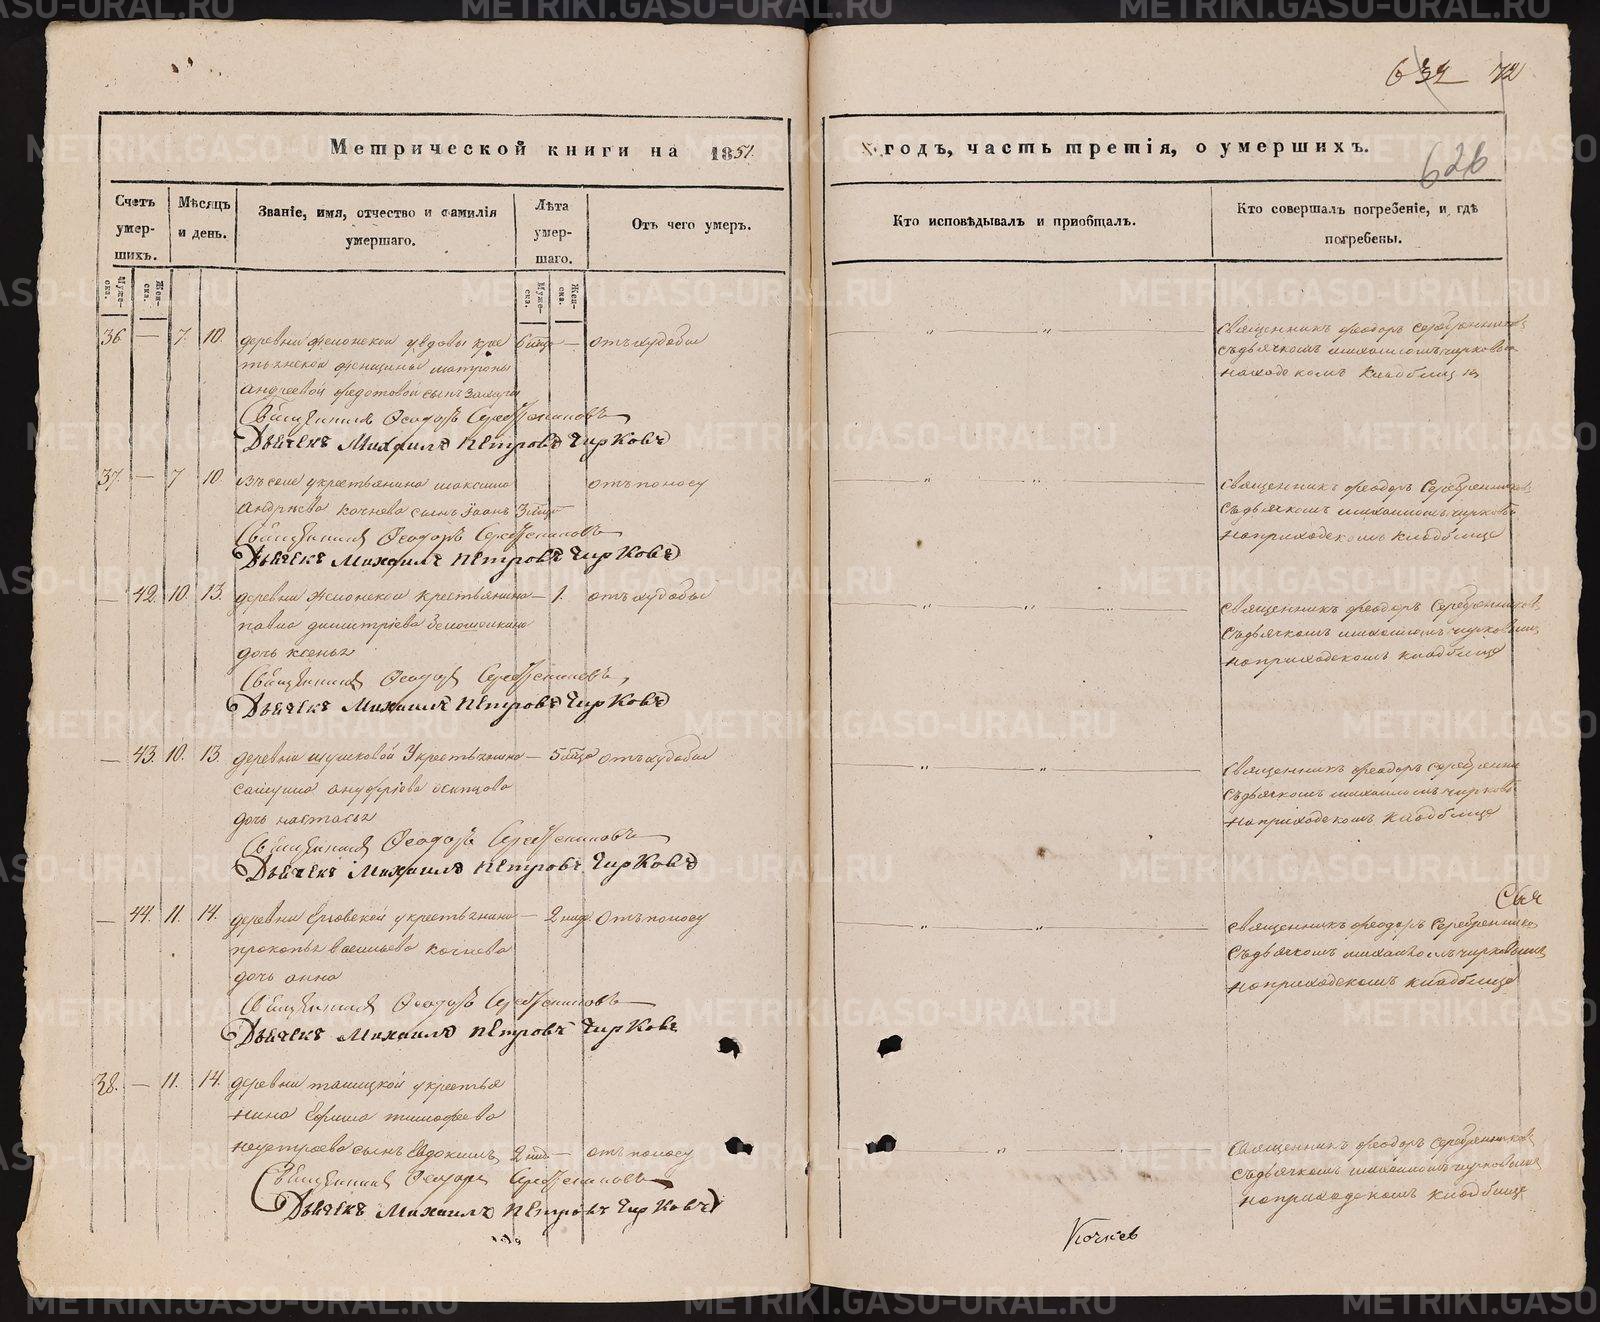 634 72
Метрической книги на 1851.
годъ, часть третія, о умершихъ.
626
Счетъ умер-шихъ.
Мѣсяцъ и день.
Званіе, имя, отчество и фамилія умершаго.
Лѣта умер-шаго.
Отъ чего умеръ.
Кто исповѣдывалъ и пріобщалъ.
Кто совершалъ погребеніе, и гдѣ погребены.
Муже-ска. Жен-ска. Муже-ска. Жен-ска.
36 — 7. 10. деревни у вдовы кре — отъ худобы
стьянской женщины матроны
андреевой федотовой сынъ
Священникъ Феодоръ Серебренниковъ
Дьячекъ Михаилъ Петровъ Чирковъ
священникъ феодоръ Серебренниковъ
съ дьячкомъ михаиломъ чирковым
кладбище
37. — 7 10. въ селе у крестьянина максима отъ поносу
андреева кочнева сынъ Іоанъ 3
Священникъ Феодоръ Серебренниковъ
Дьячекъ Михаилъ Петровъ Чирковъ
священникъ феодоръ Серебренниковъ
съ дьячкомъ михаиломъ чирковым
на приходскомъ кладбище
— 42. 10. 13. деревни крестьянина — 1. отъ худобы
павла димитріева
дочь ксенья
Священникъ Феодоръ Серебренниковъ
Дьячекъ Михаилъ Петровъ Чирковъ
священникъ феодоръ Серебренниковъ
съ дьячкомъ михаиломъ чирковым
на приходскомъ кладбище
— 43. 10. 13. деревни у крестьянина — 5 отъ худобы
онуфріева осипова
дочь настасья
Священникъ Феодоръ Серебренниковъ
Дьячекъ Михаилъ Петровъ Чирковъ
священникъ феодоръ серебренни
съ дьячкомъ михаиломъ чирковы
на приходскомъ кладбище
— 44. 11. 14. деревни у крестьянина — 2 нид. отъ поносу
прокопья васильева кочнева
дочь анна
Священникъ Феодоръ Серебренниковъ
Дьячекъ Михаилъ Петровъ Чирковъ
священникъ феодоръ Серебренников
съ дьячкомъ михаиломъ чирковымъ
на приходскомъ кладбище
38. — 11. 14. деревни у крестья
нина Ефима тимофеева
неустроева сынъ Евдокимъ 2 — отъ поносу
Священникъ Феодоръ Серебренниковъ
Дьячекъ Михаилъ Петровъ Чирковъ
священникъ феодоръ Серебренников
съ дьячкомъ михаиломъ чирковымъ
на приходскомъ кладбище
Кочнев
METRIKI.GASO-URAL.RU